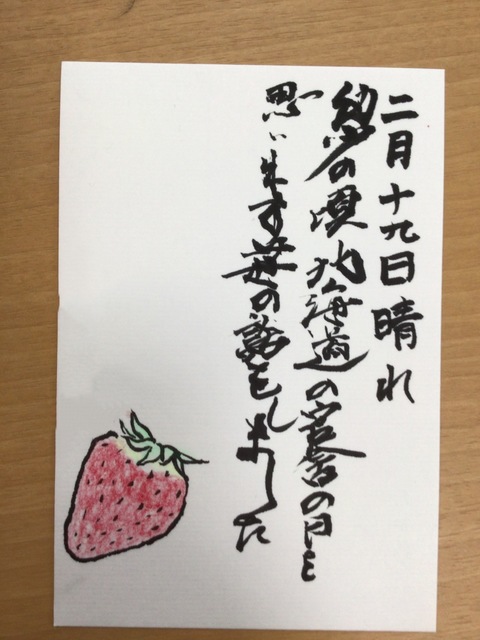 二月十九日晴れ
幼少の頃北海道の官舎の日を
思い出す苺の話をしました